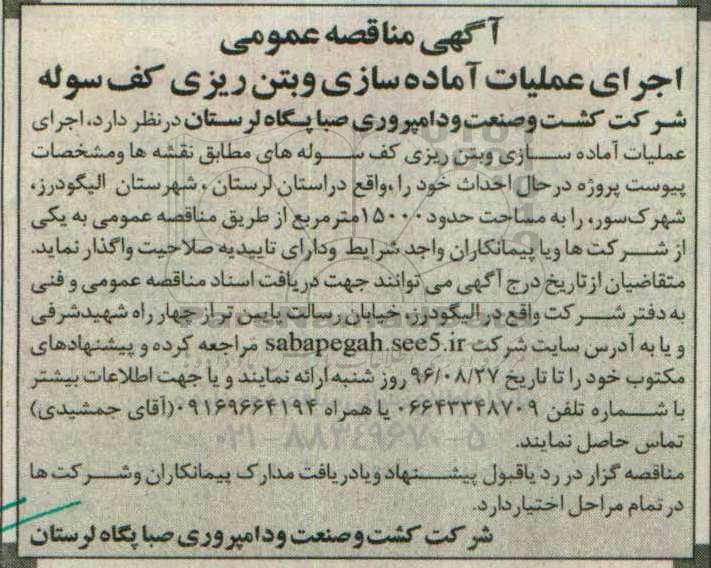 آگهی مناقصه عمومی
اجرای عملیات آماده سازی وبتن ریزی کف سوله
شرکت کشت وصنعت ودامپروری صبا پگاه لرستان درنظر دارد، اجرای
عملیات آماده سازی وبتن ریزی کف سوله های مطابق نقشه ها ومشخصات
پیوست پروژه درحال احداث خود را ،واقع دراستان لرستان ، شهرستان الیگودرز،
شهرک سور، را به مساحت حدود ۱۵۰۰۰مترمربع از طریق مناقصه عمومی به یکی
از شرکت ها ویا پیمانکاران واجد شرایط ودارای تاییدیه صلاحیت واگذار نماید.
متقاضیان ازتاریخ درج آگهی می توانند جهت دریافت اسناد مناقصه عمومی و فنی
به دفتر شرکت واقع در الیگودرز، خیابان رسالت پایین تر از چهار راه شهیدشرفی
و یا به آدرس سایت شرکت sabapegah.see5.ir مراجعه کرده و پیشنهادهای
مکتوب خود را تا تاریخ ۹۶/۰۸/۲۷ روز شنبه ارائه نمایند و یا جهت اطلاعات بیشتر
با شماره تلفن ۰۶۶۴۳۳۴۸۷۰۹ یا همراه ۰۹۱۶۹۶۶۴۱۹۴(آقای جمشیدی)
تماس حاصل نمایند.
۰۲۱-۸۸۳۴۹۶۷۰-۵
مناقصه گزار در رد یاقبول پیشنهاد ویادریافت مدارک پیمانکاران وشرکت ها
در تمام مراحل اختیار دارد.
شرکت کشت وصنعت ودامپروری صبا پگاه لرستان